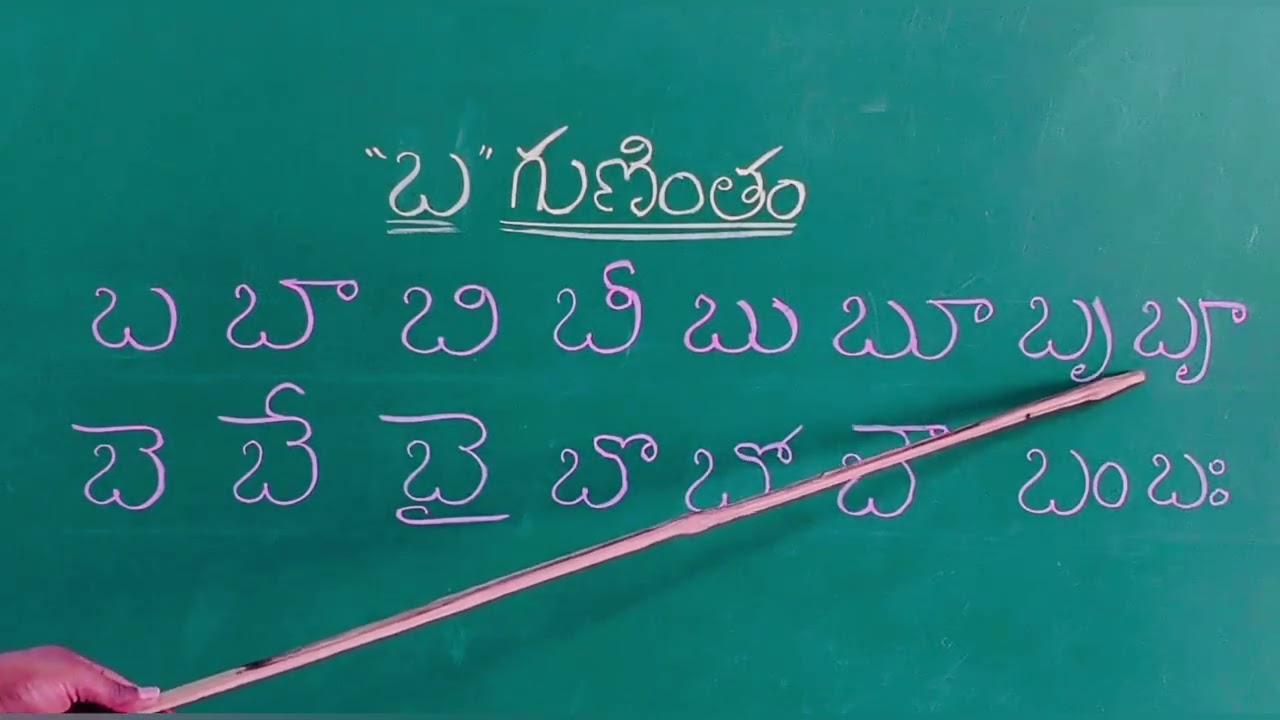 "బ" గుణింతం
బ బా బి బీ బు బూ బృ బౄ
బె బే బై బొ బో బౌ బం బః